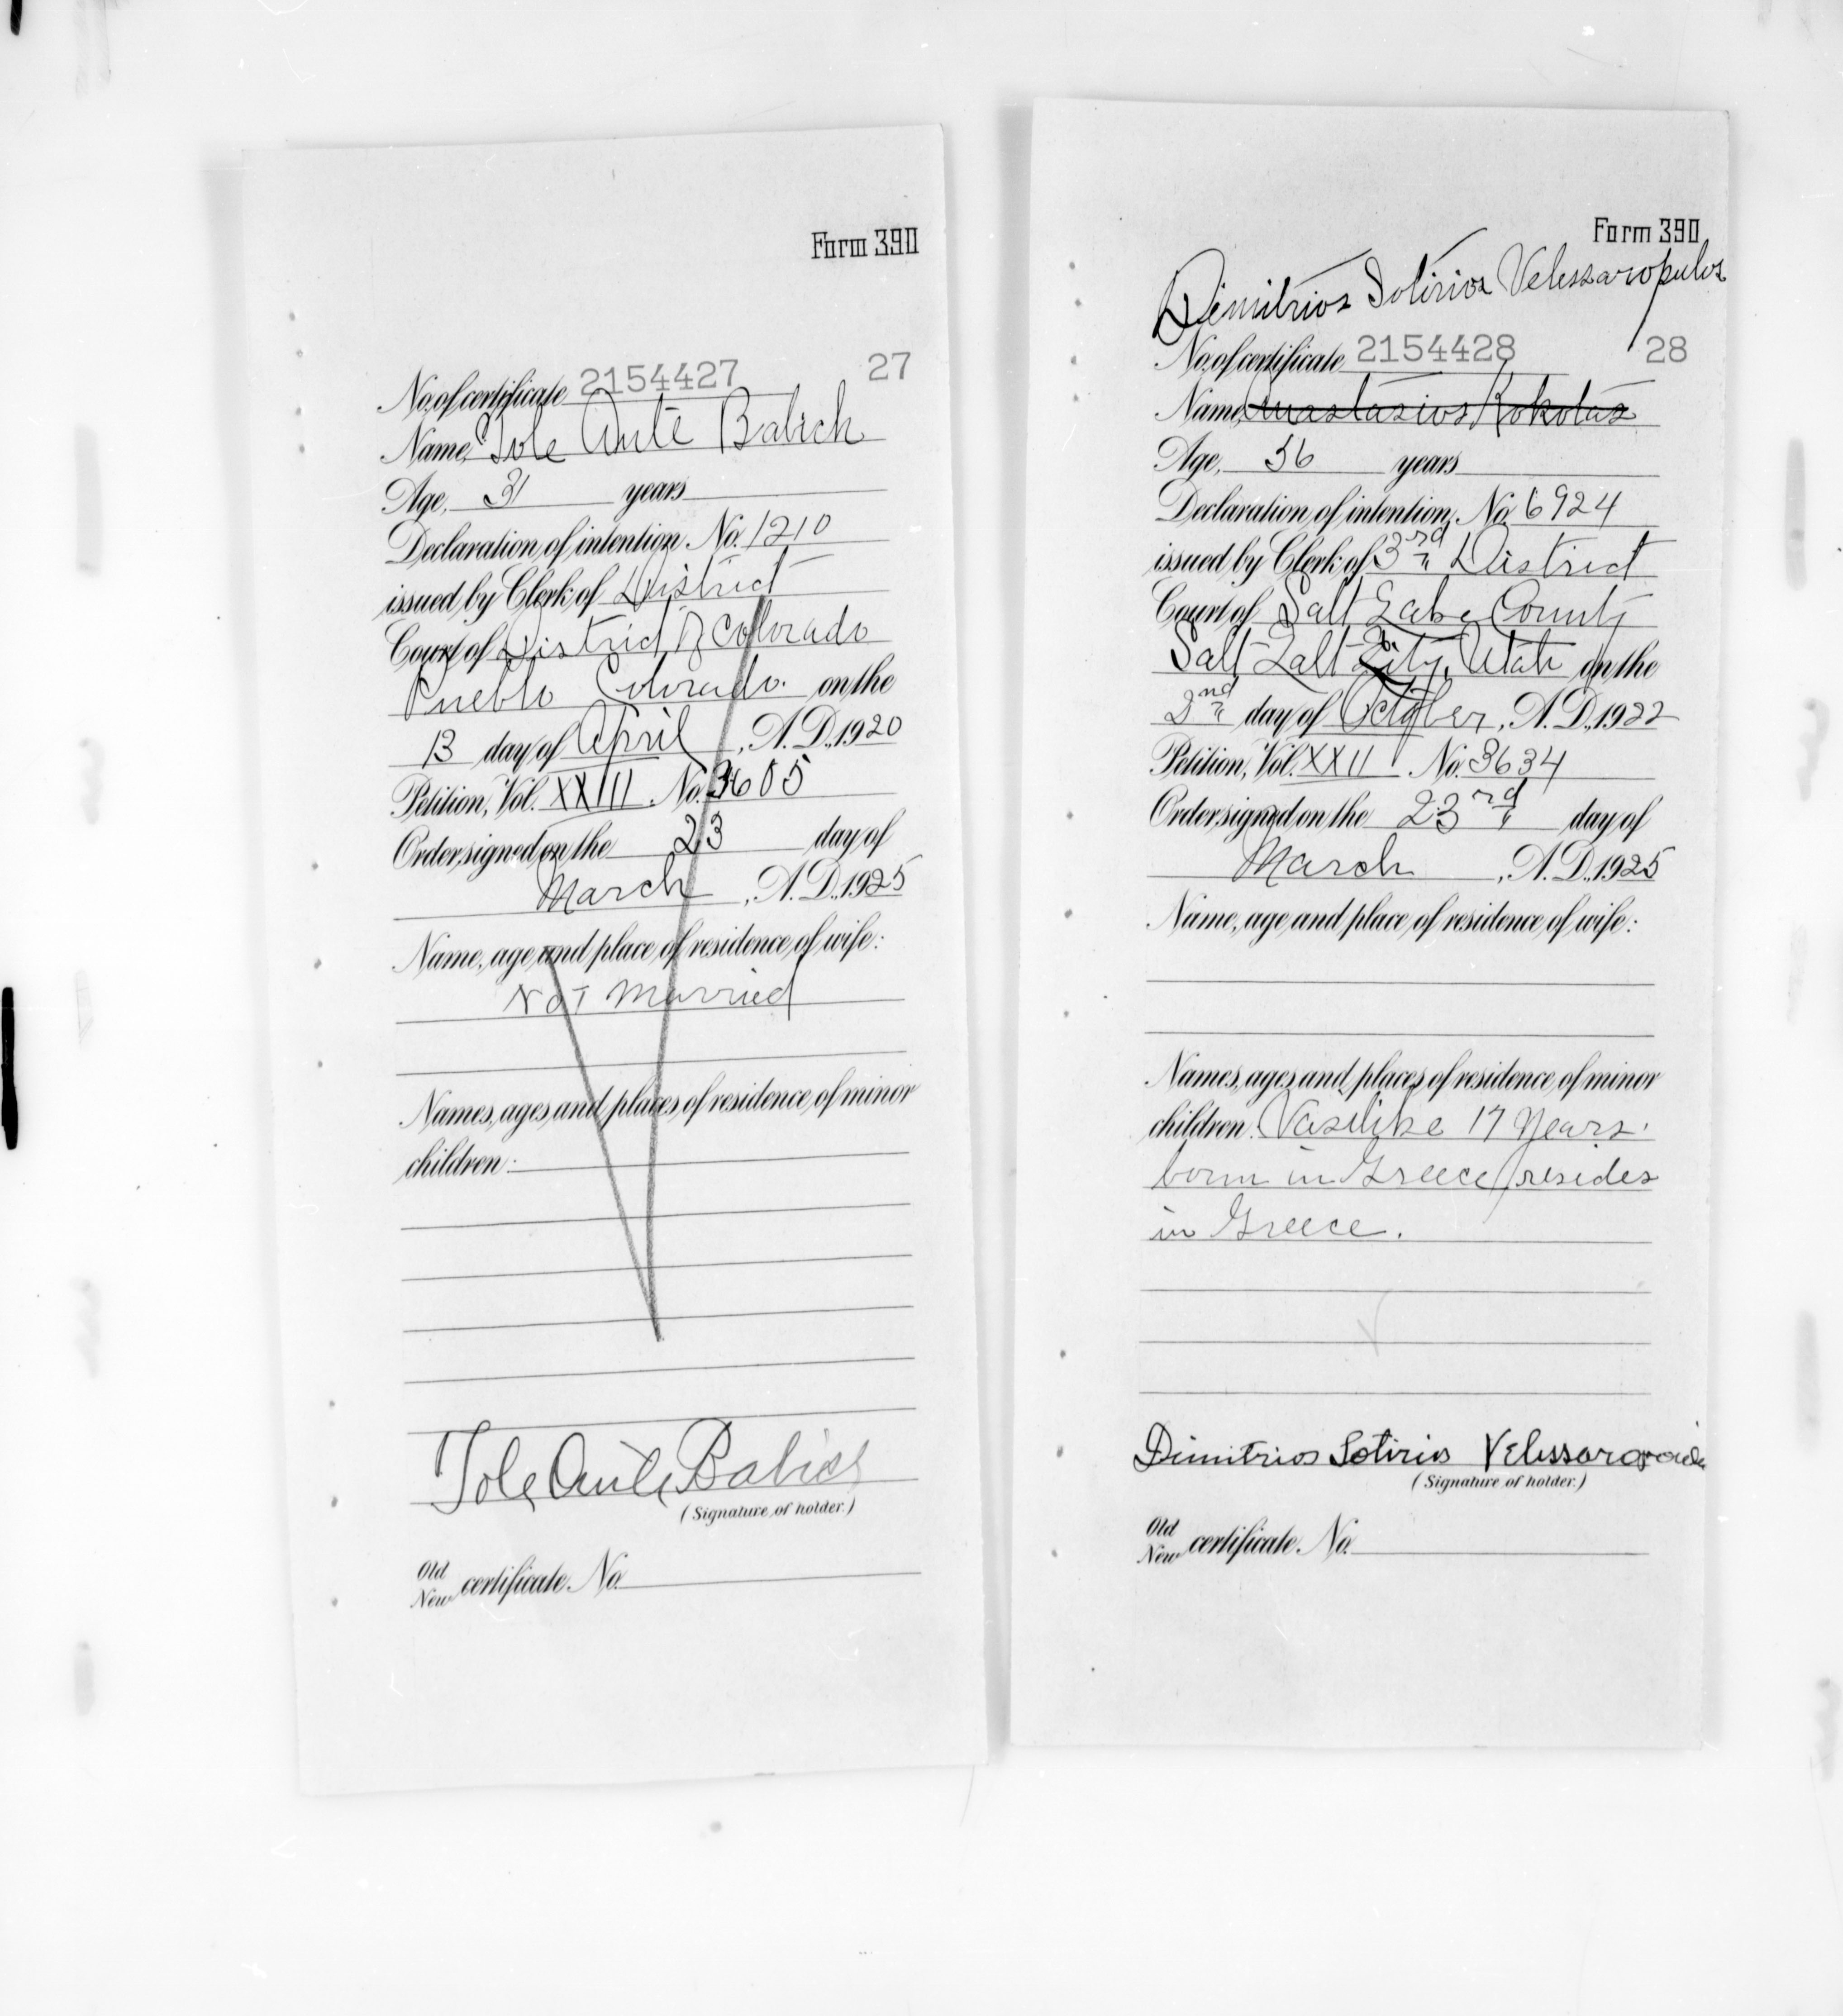 Form 390
No. of certificate 2154427 27
Name, Tole Ante Babich
Age, 31 years
Declaration of intention No. 1210
issued by Clerk of District
Court of District of Colorado
Pueblo Colorado. on the
13 day of April, A.D., 1920
Petition, Vol. XXIII. No. 3605
Order signed on the 23 day of
March, A.D., 1925
Name, age and place of residence of wife:
Not Married
Names, ages and places of residence of minor
children:
Tole Ante Babich
(Signature of holder.)
Old
New certificate No.
Form 390
Dimitrios Sotirios Velissaropulos
No. of certificate 2154428 28
Name, Anastasios Kokotas
Age, 56 years
Declaration of intention, No. 6924
issued by Clerk of 3rd District
Court of Salt Lake County
Salt Lalt City, Utah on the
2nd day of October, A.D., 1922
Petition, Vol. XXII No. 3634
Order signed on the 23rd day of
March, A.D., 1925
Name, age and place of residence of wife:
Names, ages and places of residence of minor
children Vasilike 17 years.
born in Greece, resides
in Greece.
Dimitrios Sotirios
(Signature of holder.)
Old
New certificate No.